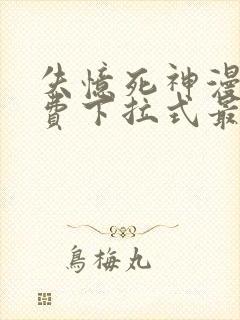 失憶死神漫
費下拉式最
鳥梅丸